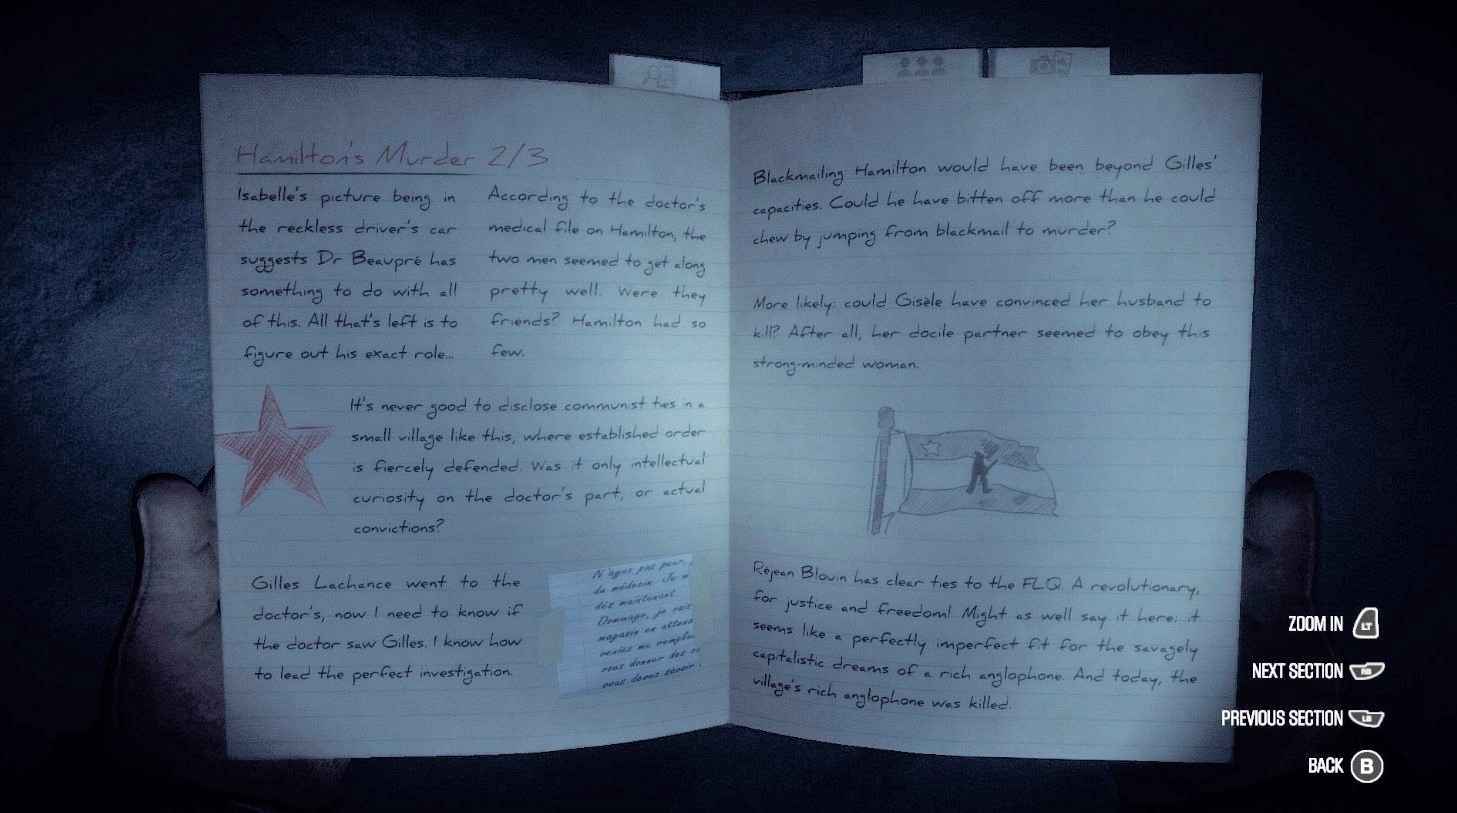 Hamilton's Murder 2/3
Isabelle's picture being in
the reckless driver's car
suggests Dr Beaupré has
something to do with all
of this. All that's left is to
figure out his exact role...
According to the doctor's
medical file on Hamilton, the
two men seemed to get along
pretty well. Were they
friends? Hamilton had so
few.
It's never good to disclose communist ties in a
small village like this, where established order
is fiercely defended. Was it only intellectual
curiosity on the doctor's part, or actual
convictions?
Gilles Lachance went to the
doctor's, now I need to know if
the doctor saw Gilles. I know how
to lead the perfect investigation.
N'ayez pas peur,
du médecin. Je
dès maintenant
magasin en
vous donner des
vous devez savoir
Blackmailing Hamilton would have been beyond Gilles'
capacities. Could he have bitten off more than he could
chew by jumping from blackmail to murder?
More likely: could Gisèle have convinced her husband to
kill? After all, her docile partner seemed to obey this
strong-minded woman.
Réjean Blouin has clear ties to the FLQ. A revolutionary,
for justice and freedom! Might as well say it here: it
seems like a perfectly imperfect fit for the savagely
capitalistic dreams of a rich anglophone. And today, the
village's rich anglophone was killed.
ZOOM IN LT
NEXT SECTION RB
PREVIOUS SECTION LB
BACK B